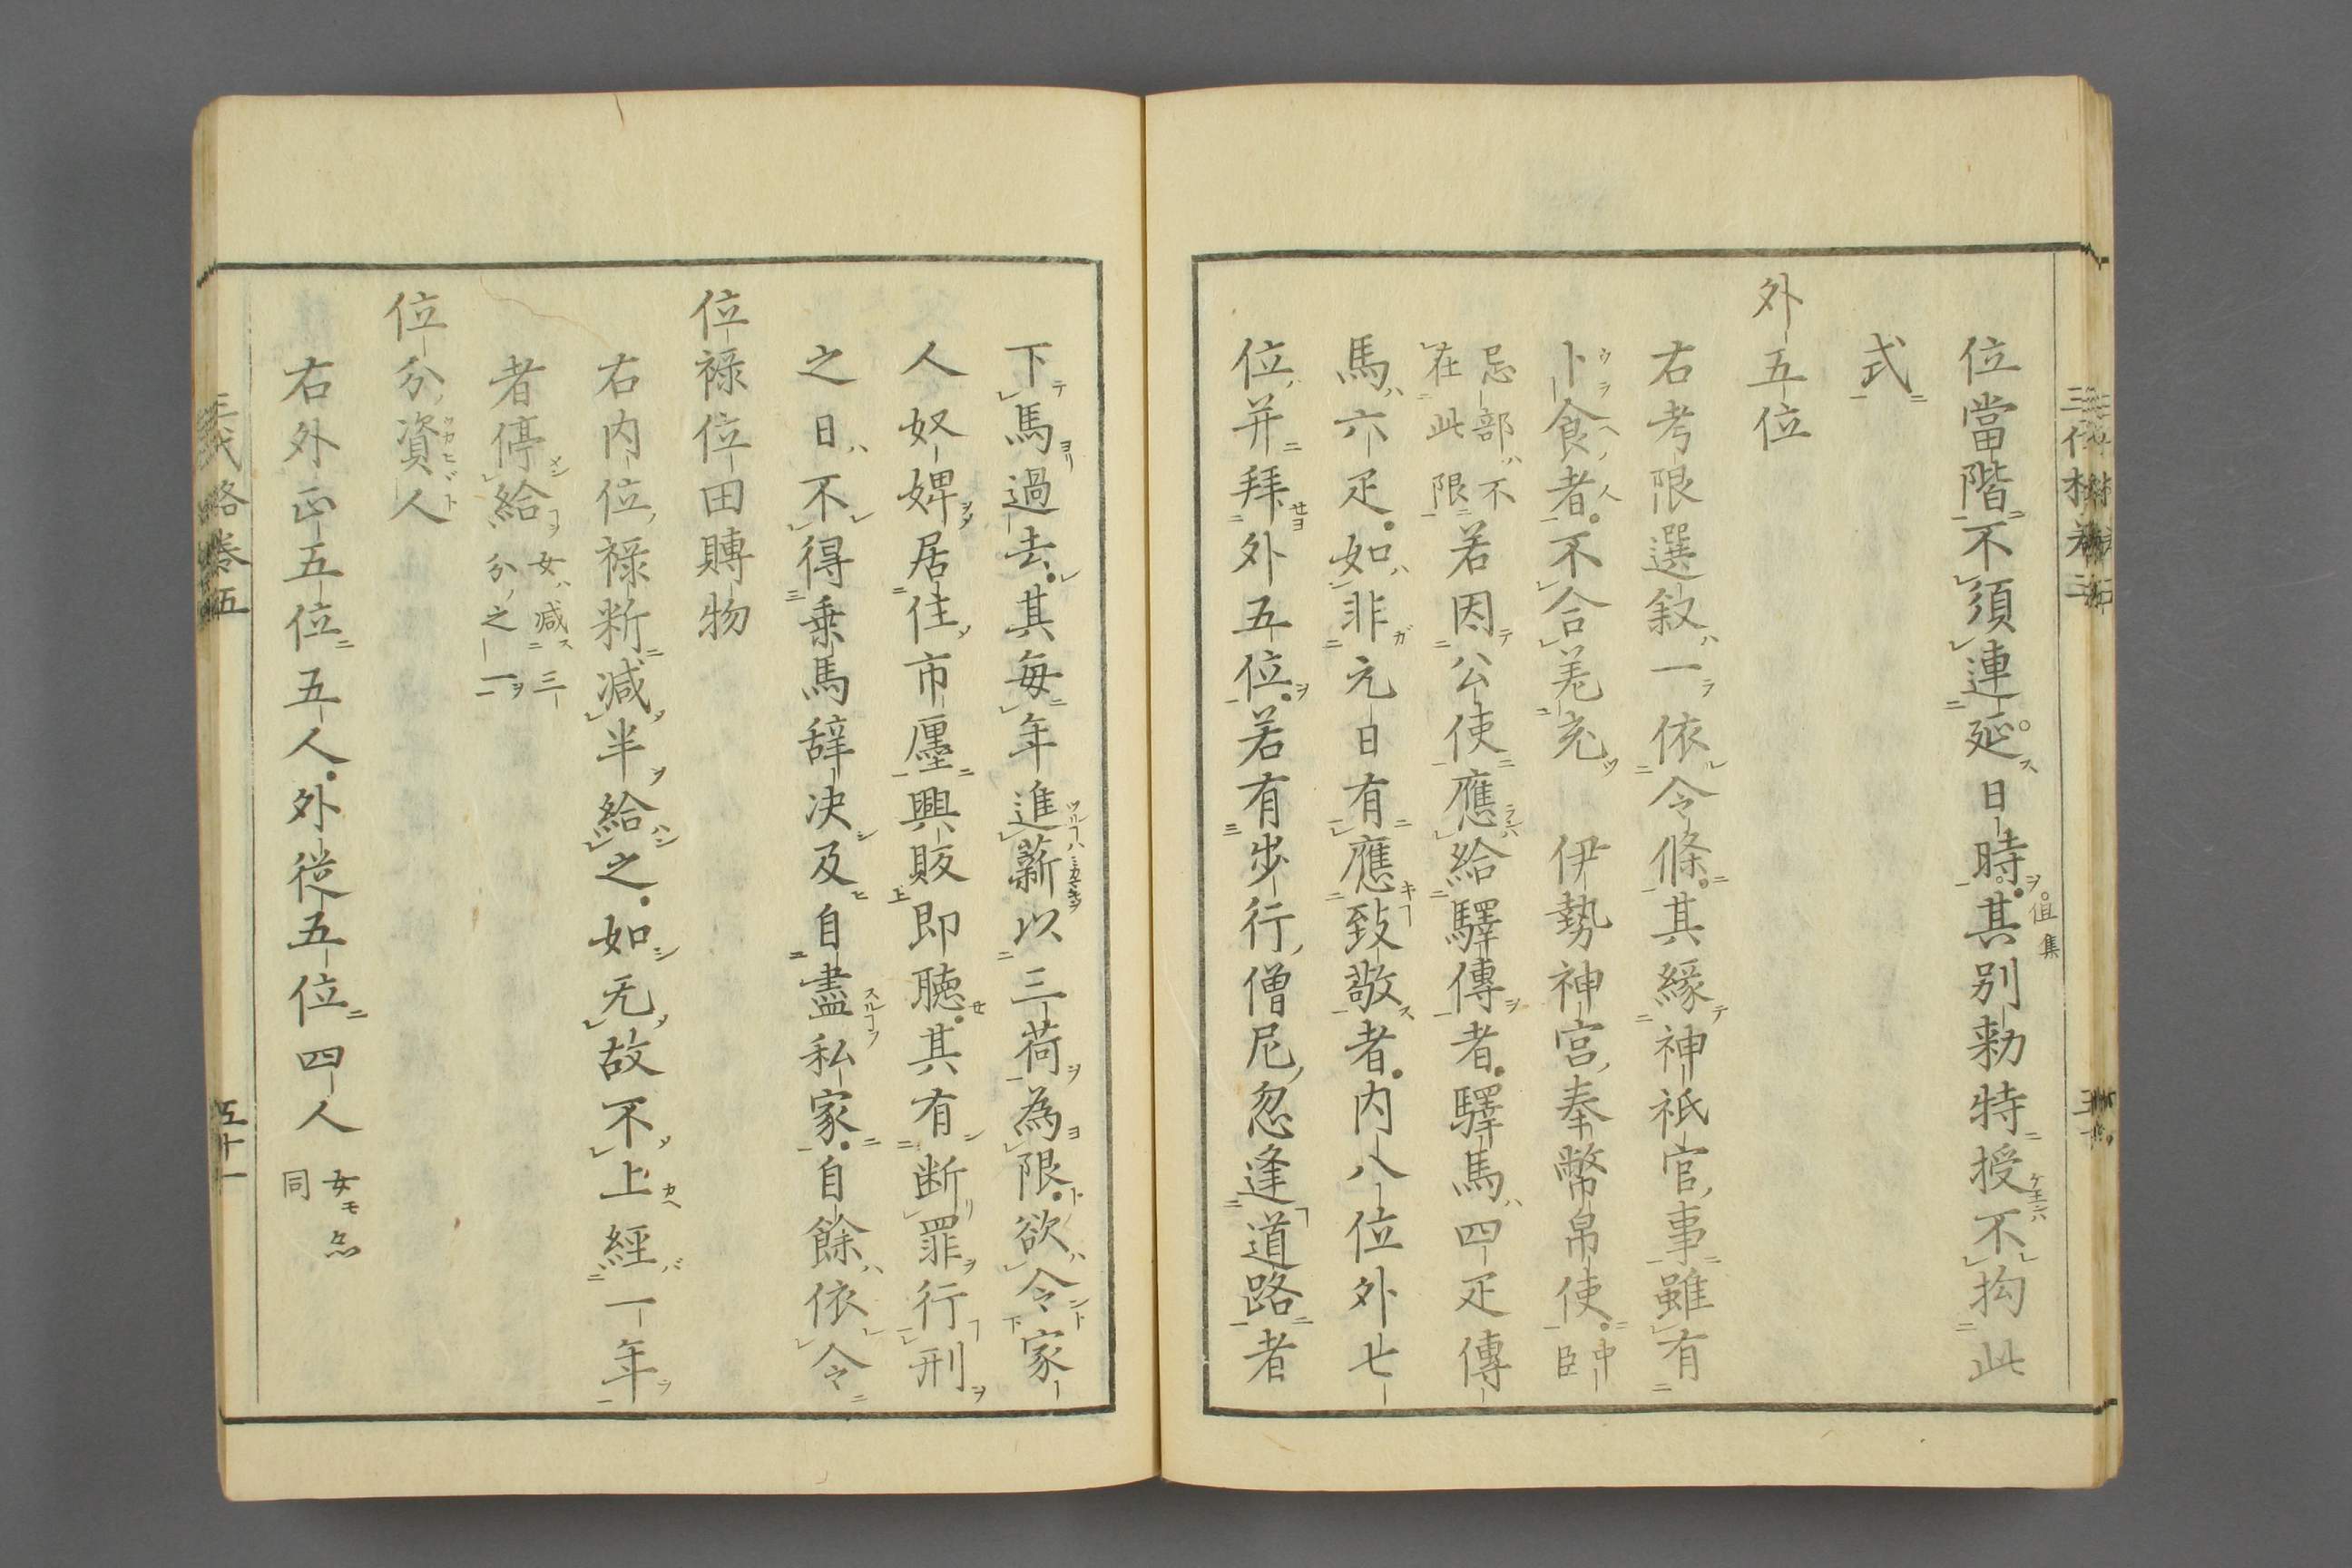 位當階不須連延日時其別勅特授不拘此
式
外五位
右考限選叙一依令條其緣神祇官事雖有
卜食者不合差充 伊勢神宮奉幣帛使中臣
忌部不在此限若因公使應給驛傳者驛馬四疋傳
馬六疋如非元日有應致敬者內八位外七
位并拜外五位若有步行僧尼忽逢道路者
下馬過去其每年進薪以三荷為限欲令家
人奴婢居住市廛興販即聴其有断罪行刑
之日不得乗馬辞决及自盡私家自餘依令
位祿位田賻物
右內位祿断減半給之如无故不上經一年
者停給女減三分之一
位分資人
右外正五位五人外從五位四人女亦同
三代格卷五
五十一